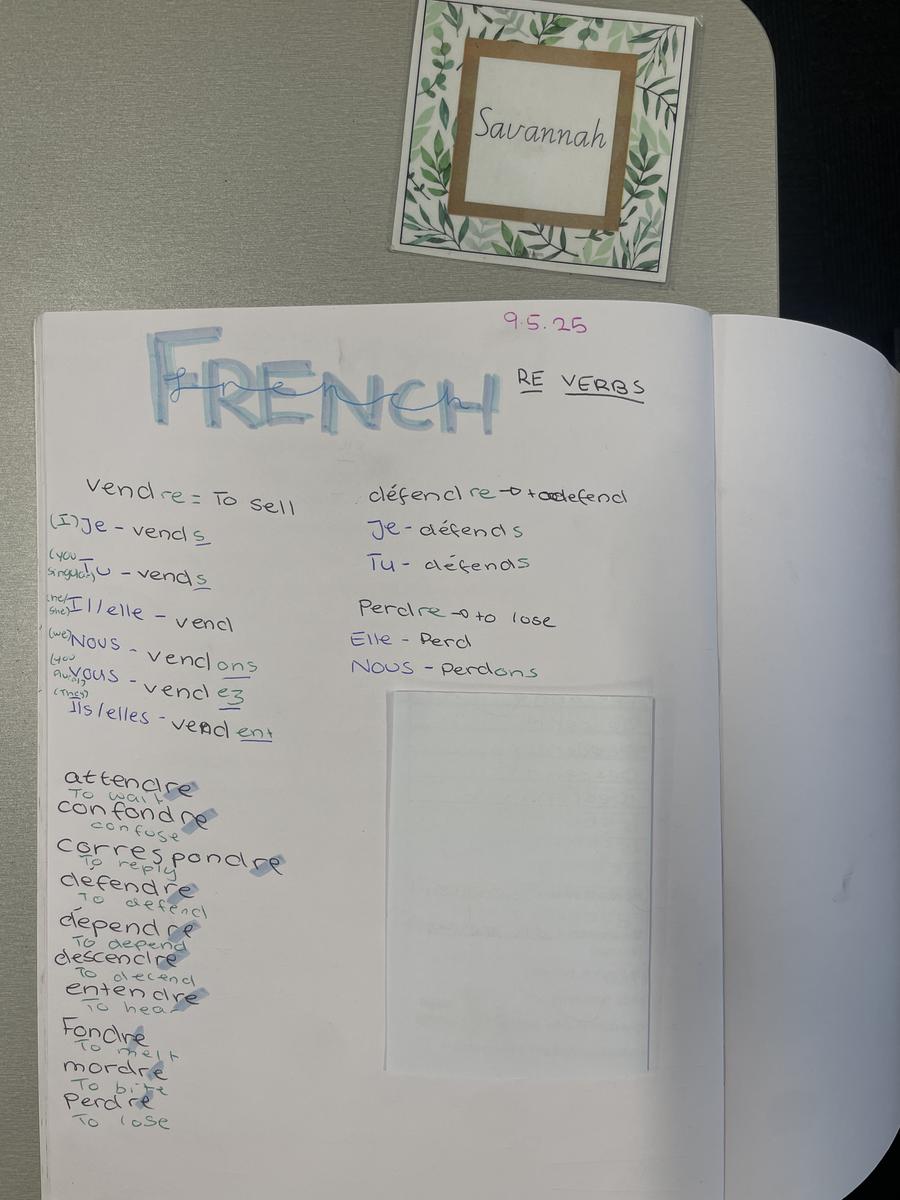 Savannah
9.5.25
FRENCH
french
RE VERBS
vendre = To sell
(I) Je - vends
(you singular) Tu - vends
(he/she) Il/elle - vend
(we) Nous - vendons
(you) vous - vendez
(They) Ils/elles - vendent
attendre
To wait
confondre
confuse
correspondre
To reply
défendre
To defend
dépendre
To depend
descendre
To decend
entendre
To hear
Fondre
To melt
mordre
To bite
Perdre
To lose
défendre → to defend
Je - défends
Tu - défends
Perdre → to lose
Elle - Perd
Nous - perdons